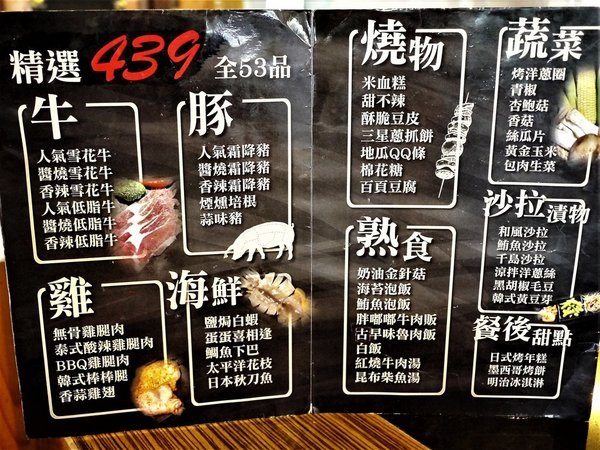 精選 439 全53品
牛
人氣雪花牛
醬燒雪花牛
香辣雪花牛
人氣低脂牛
醬燒低脂牛
香辣低脂牛
豚
人氣霜降豬
醬燒霜降豬
香辣霜降豬
煙燻培根
蒜味豬
雞
無骨雞腿肉
泰式酸辣雞腿肉
BBQ雞腿肉
韓式棒棒腿
香蒜雞翅
海鮮
鹽焗白蝦
蛋蛋喜相逢
鯛魚下巴
太平洋花枝
日本秋刀魚
燒物
米血糕
甜不辣
酥脆豆皮
三星蔥抓餅
地瓜QQ條
棉花糖
百頁豆腐
熟食
奶油金針菇
海苔泡飯
鮪魚泡飯
胖嘟嘟牛肉販
古早味魯肉飯
白飯
紅燒牛肉湯
昆布柴魚湯
蔬菜
烤洋蔥圈
青椒
杏鮑菇
香菇
絲瓜片
黃金玉米
包肉生菜
沙拉漬物
和風沙拉
鮪魚沙拉
千島沙拉
涼拌洋蔥絲
黑胡椒毛豆
韓式黃豆芽
餐後甜點
日式烤年糕
墨西哥烤餅
明治冰淇淋